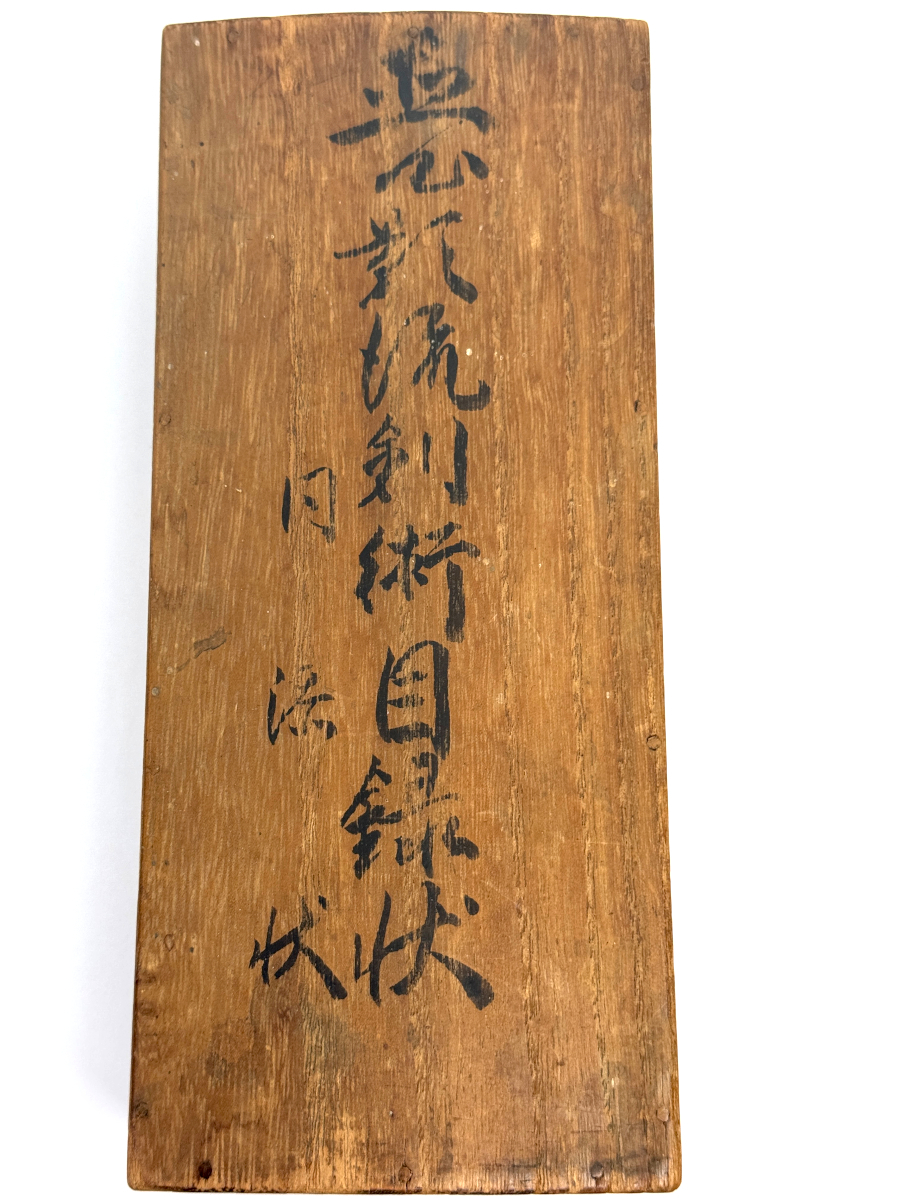 直心影流剣術目録状
同添状